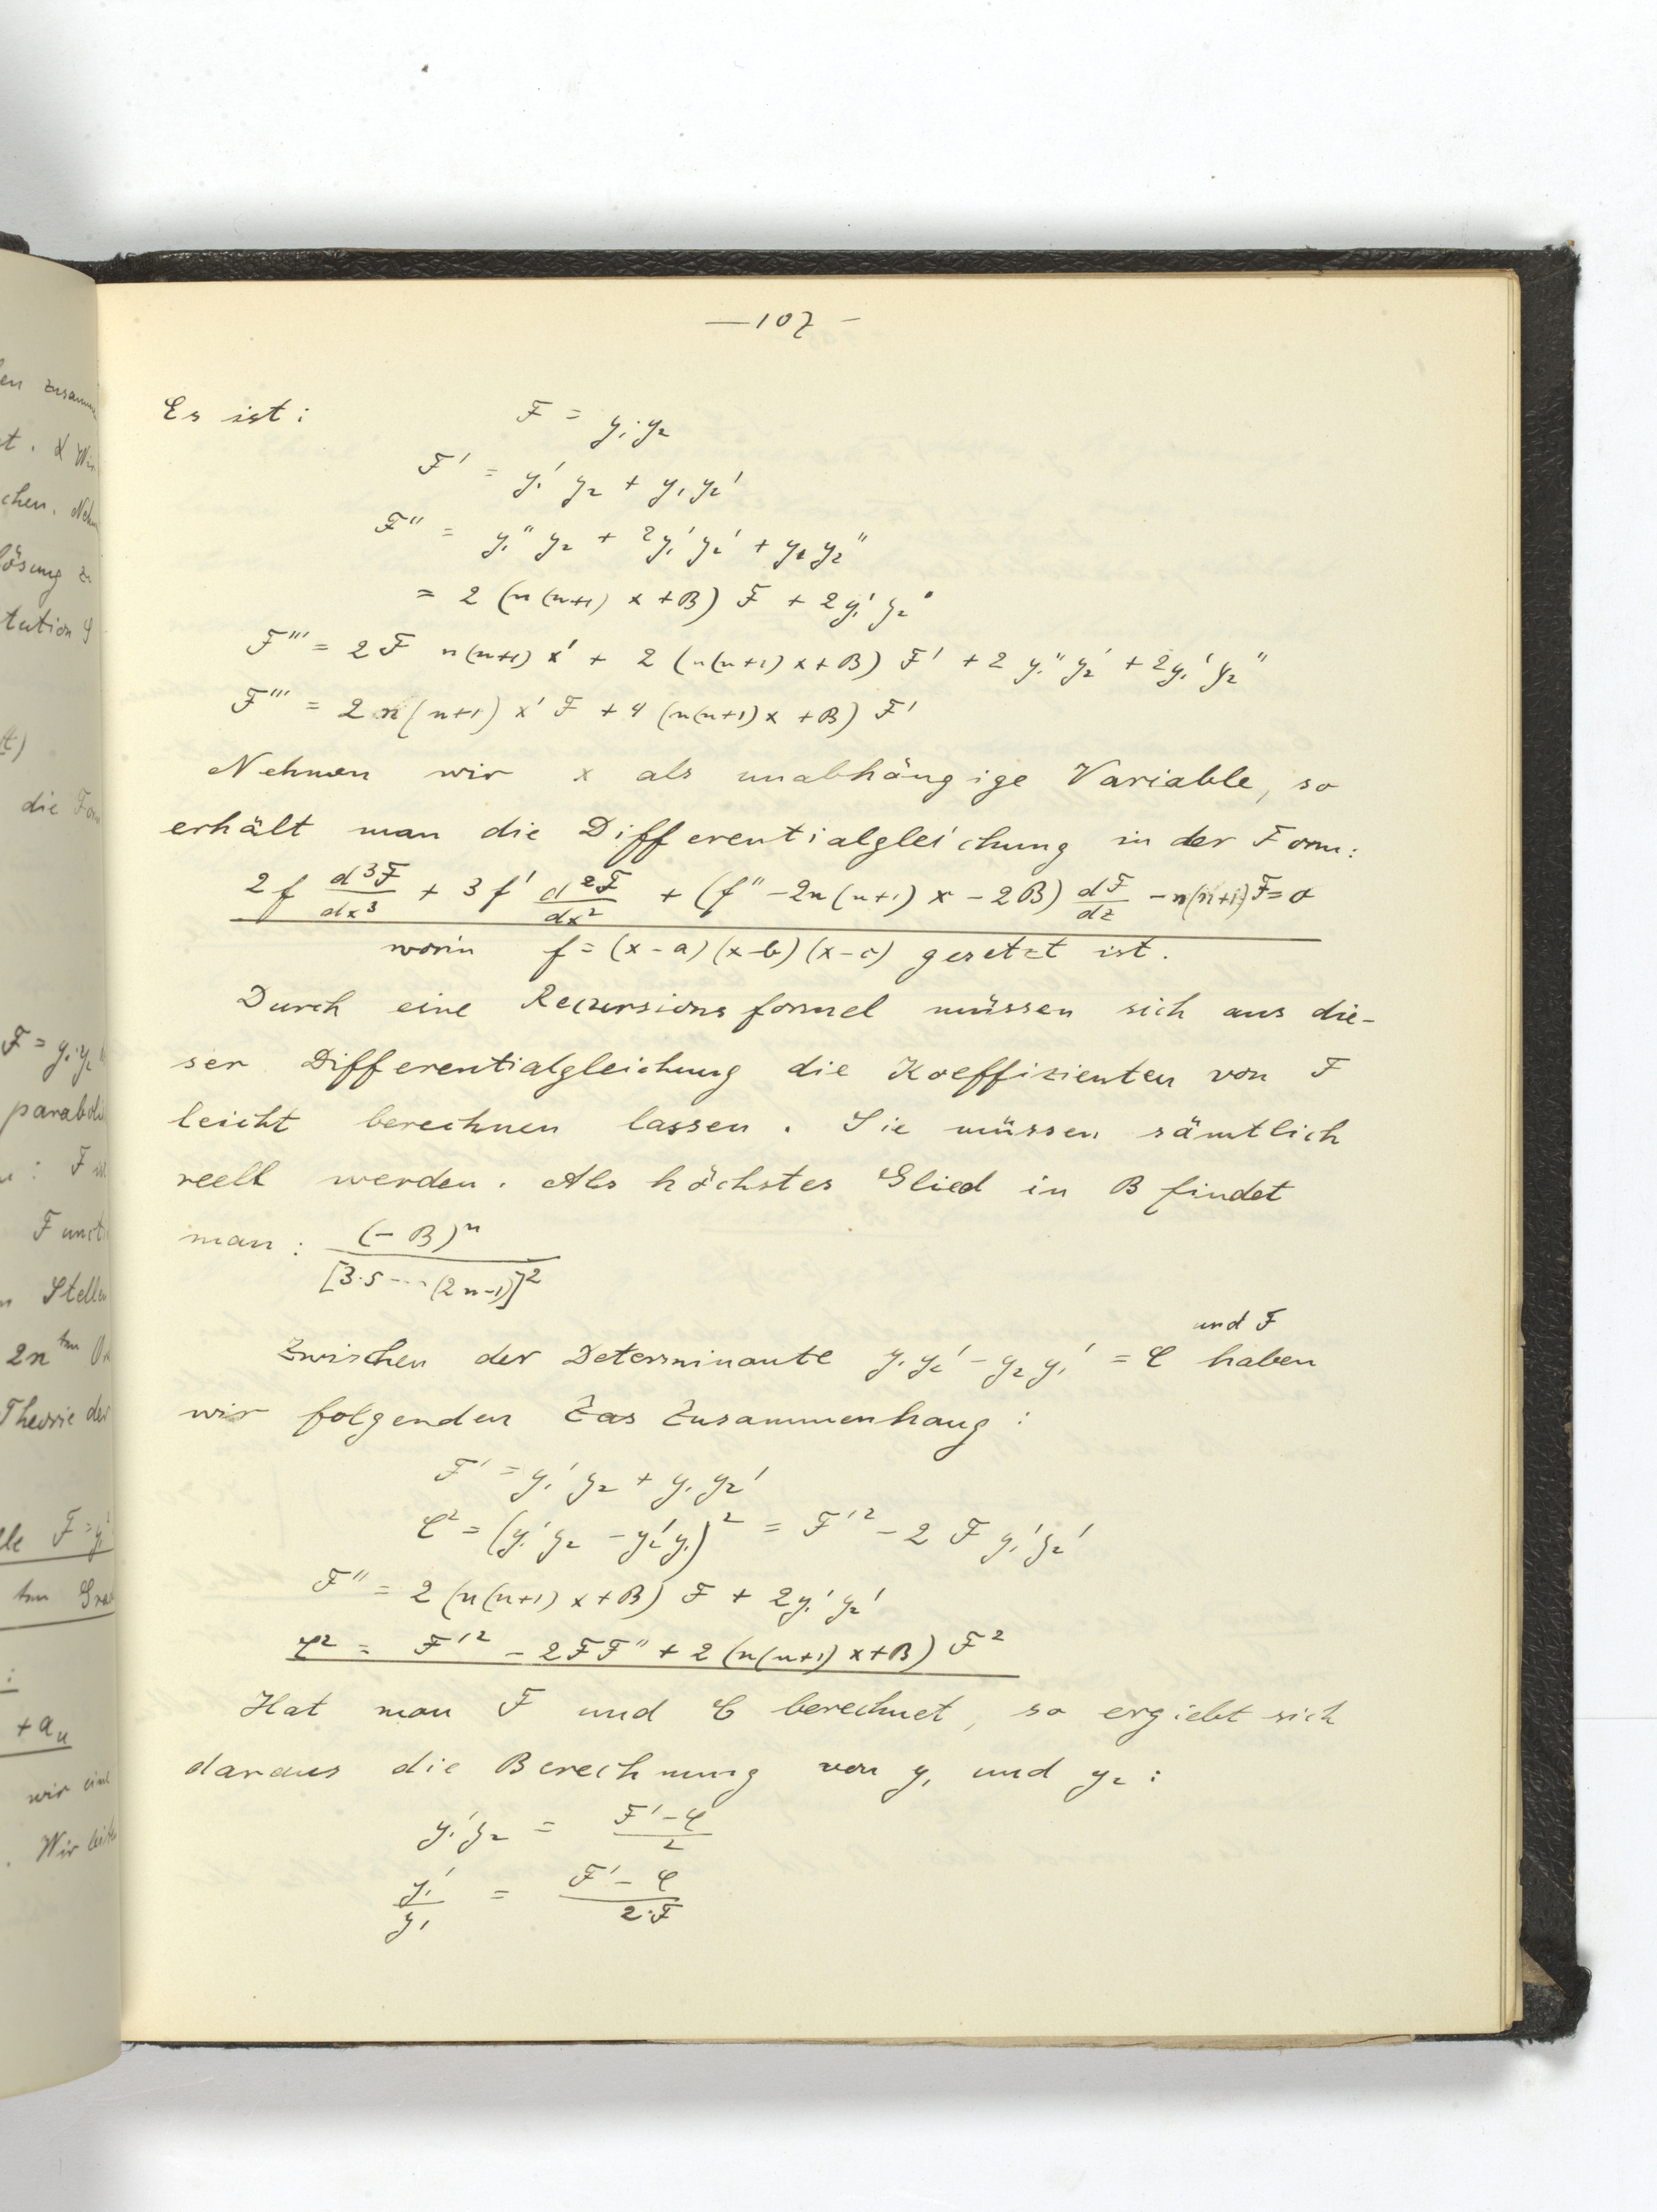 — 107 —
Es ist: F = y₁ y₂
F' = y₁' y₂ + y₁ y₂'
F'' = y₁'' y₂ + 2y₁' y₂' + y₁ y₂''
= 2 (n(n+1) x + B) F + 2 y₁' y₂'
F''' = 2 F n(n+1) x' + 2 (n(n+1) x + B) F' + 2 y₁'' y₂' + 2 y₁' y₂''
F''' = 2 n(n+1) x' F + 4 (n(n+1) x + B) F'
Nehmen wir x als unabhängige Variable, so
erhält man die Differentialgleichung in der Form:
2 f d³F/dx³ + 3 f' d²F/dx² + (f'' - 2n(n+1) x - 2B) dF/dz - n(n+1) F = 0
worin f = (x-a)(x-b)(x-c) gesetzt ist.
Durch eine Recursionsformel müssen sich aus die-
ser Differentialgleichung die Koeffizienten von F
leicht berechnen lassen. Sie müssen sämtlich
reell werden. Als höchstes Glied in B findet
man: (-B)ⁿ / [3·5 ··· (2n-1)]²
und F
Zwischen der Determinante y₁ y₂' - y₂ y₁' = C haben
wir folgenden Zas Zusammenhang:
F' = y₁' y₂ + y₁ y₂'
C² = (y₁' y₂ - y₂' y₁)² = F'² - 2 F y₁' y₂'
F'' = 2 (n(n+1) x + B) F + 2 y₁' y₂'
C² = F'² - 2FF'' + 2 (n(n+1) x + B) F²
Hat man F und C berechnet, so ergiebt sich
daraus die Berechnung von y₁ und y₂:
y₁' y₂ = (F' - C)/2
y₁'/y₁ = (F' - C)/(2·F)